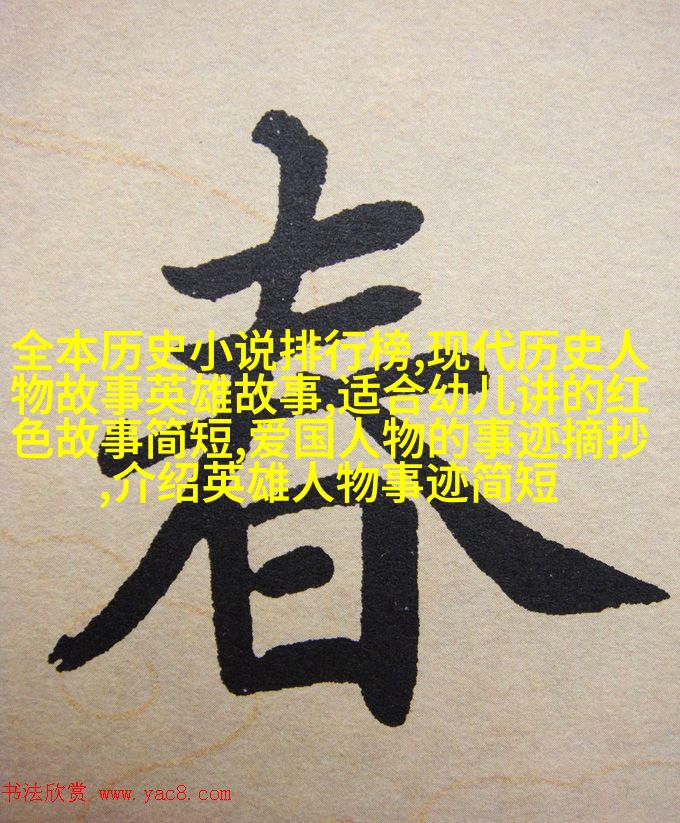 春
全本历史小说排行榜,现代历史人
物故事英雄故事,适合幼儿讲的红
色故事简短,爱国人物的事迹摘抄
,介绍英雄人物事迹简短
书法欣赏 www.yac8.com